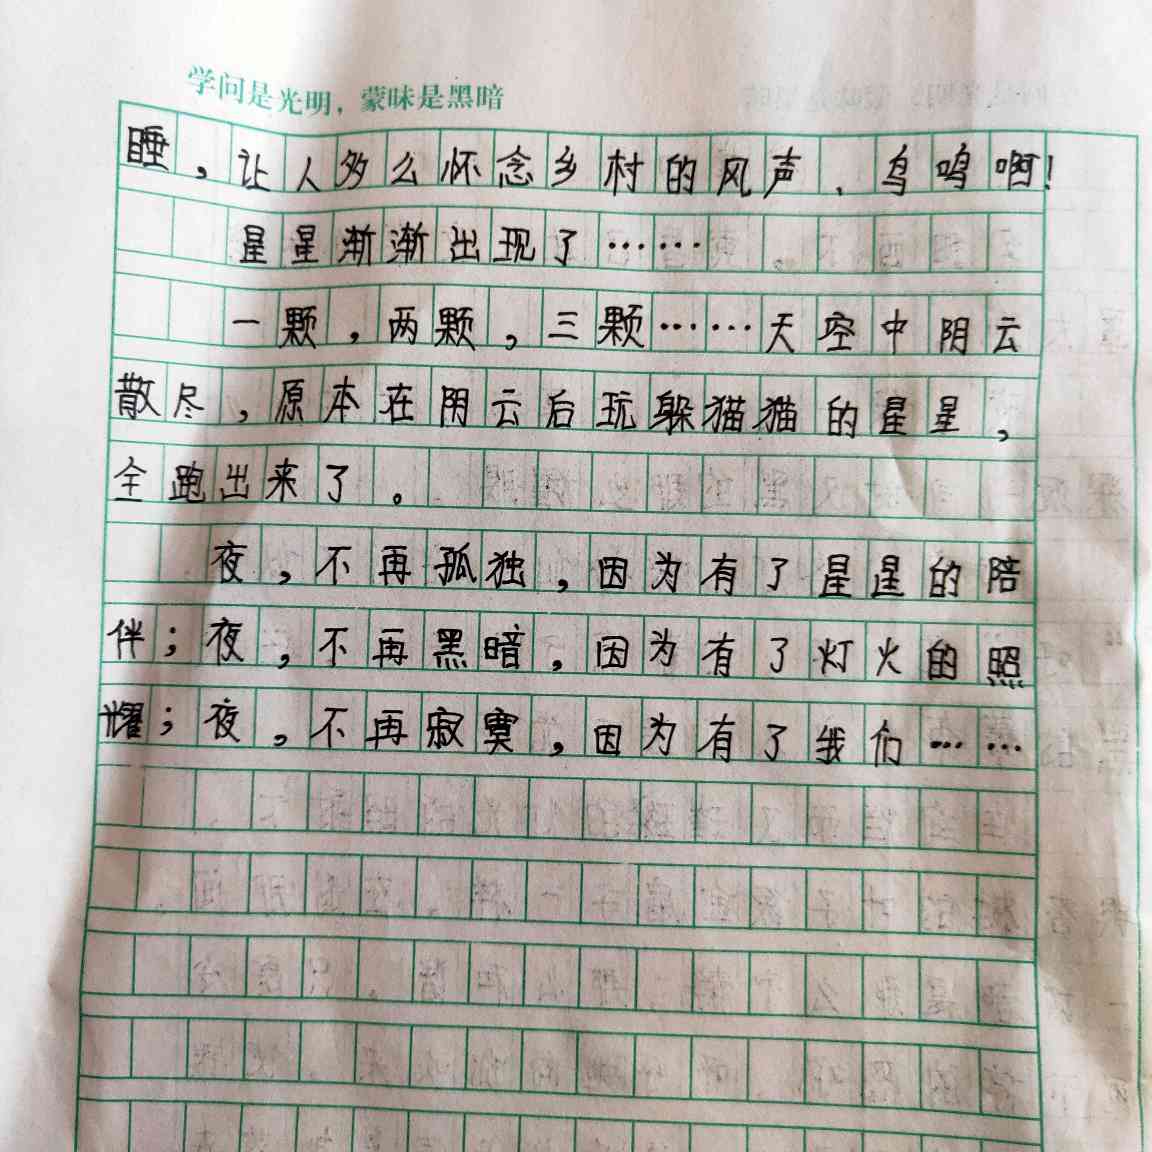 学问是光明，蒙昧是黑暗
睡，让人多么怀念乡村的风声、鸟鸣啊！
星星渐渐出现了……
一颗，两颗，三颗……天空中阴云
散尽，原本在阴云后玩躲猫猫的星星，
全跑出来了。
夜，不再孤独，因为有了星星的陪
伴；夜，不再黑暗，因为有了灯火的照
耀；夜，不再寂寞，因为有了我们……